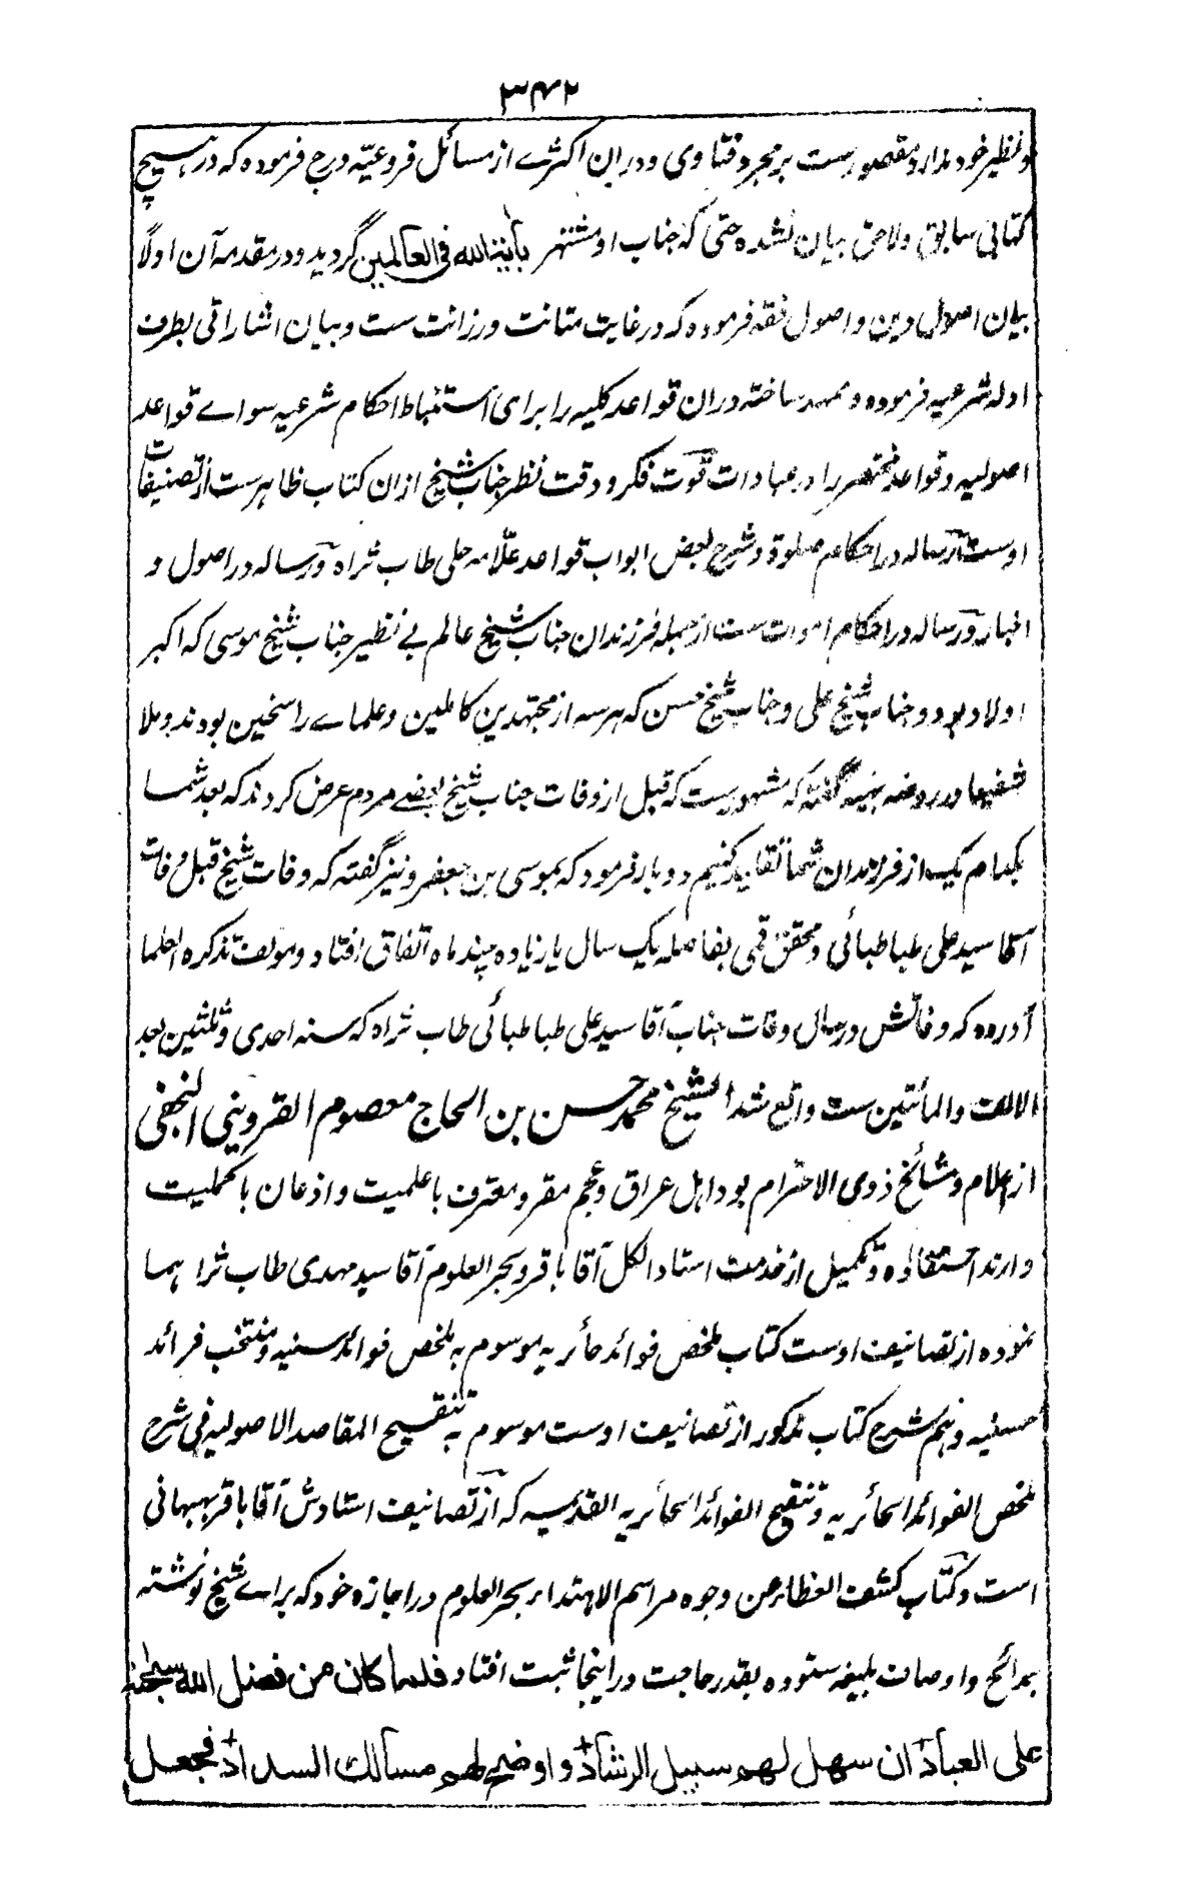 ۳۴۲
و نظیر خود ندارد و مقصورست بر مجرد فتاوی و دران اکثرے از مسائل فروعیّه درج فرموده که در هیچ
کتابی سابق ولاحق بیان نشده حتی که جناب او مشتهر بآیة الله فی العالمین گردید و در مقدمه آن اولًا
بیان اصول دین و اصول فقه فرموده که در غایت متانت و رزانت ست و بیان اشاراتی بطرف
ادله شرعیه فرموده و ممهد ساخته دران قواعد کلیه را برای استنباط احکام شرعیه سواے قواعد
اصولیه و قواعد مختصر را در عبادات قوّت فکر و دقت نظر جناب شیخ ازان کتاب ظاهرست از تصنیفات
اوست رساله در احکام صلوة و شرح بعض ابواب قواعد علّامه حلی طاب ثراه و رساله در اصول و
اخبار و رساله در احکام اموات ست از جمله فرزندان جناب شیخ عالم بے نظیر جناب شیخ موسی که اکبر
اولاد بود و جناب شیخ علی و جناب شیخ حسن که هر سه از مجتهدین کاملین و علماے راسخین بودند و ملا
شفیعا در روضه بهیه گفته که مشهورست که قبل از وفات جناب شیخ بعضے مردم عرض کردند که بعد شما
بکدام یک از فرزندان شما تقلید کنیم دو بار فرمود که بموسی بن جعفر و نیز گفته که وفات شیخ قبل وفات
آقا سید علی طباطبائی و محقق قمی بفاصله یک سال یا زیاده چند ماه اتفاق افتاد و مولف تذکره العلما
آورده که وفاتش در سال وفات جناب آقا سید علی طباطبائی طاب ثراه که سنه احدی و ثلثین بعد
الالف والمأتین ست واقع شد الشیخ محمد حسن بن الحاج معصوم القزوینی النجفی
از اعلام و مشائخ ذوی الاحترام بود اهل عراق و عجم مقر و معترف باعلمیت و اذعان باکملیت
دارند استفاده و تکمیل از خدمت استاد الکل آقا باقر و بحر العلوم آقا سید مهدی طاب ثراهما
نموده از تصانیف اوست کتاب ملخص فوائد حائریه موسوم به ملخص فوائد سنیه و منتخب فرائد
حسنیه و هم شرح کتاب مذکور از تصانیف اوست موسوم به تنقیح المقاصد الاصولیه فی شرح
ملخص الفوائد الحائریه و تنقیح الفوائد الحائریه القدیمیه که از تصانیف استادش آقا باقر بهبهانی
است و کتاب کشف الغطاء عن وجوه مراسم الاهتداء بحر العلوم در اجازه خود که براے شیخ نوشته
بمدائح و اوصاف بلیغه ستوده بقدر حاجت در اینجا ثبت افتاد فلما کان من فضل الله سبحانه
علی العباد ان سهل لهم سبیل الرشاد و اوضح لهم مسالك السداد فجعل